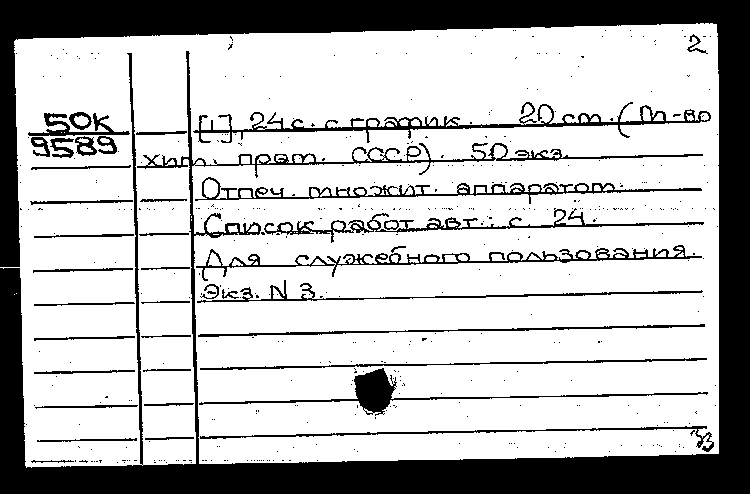 2
50К
9589
[1], 24 с. с график. 20 см. (М-во
хим. пром. СССР). 50 экз.
Отпеч. множит. аппаратом.
Список работ авт.: с. 24.
Для служебного пользования.
Экз. N 3.
33